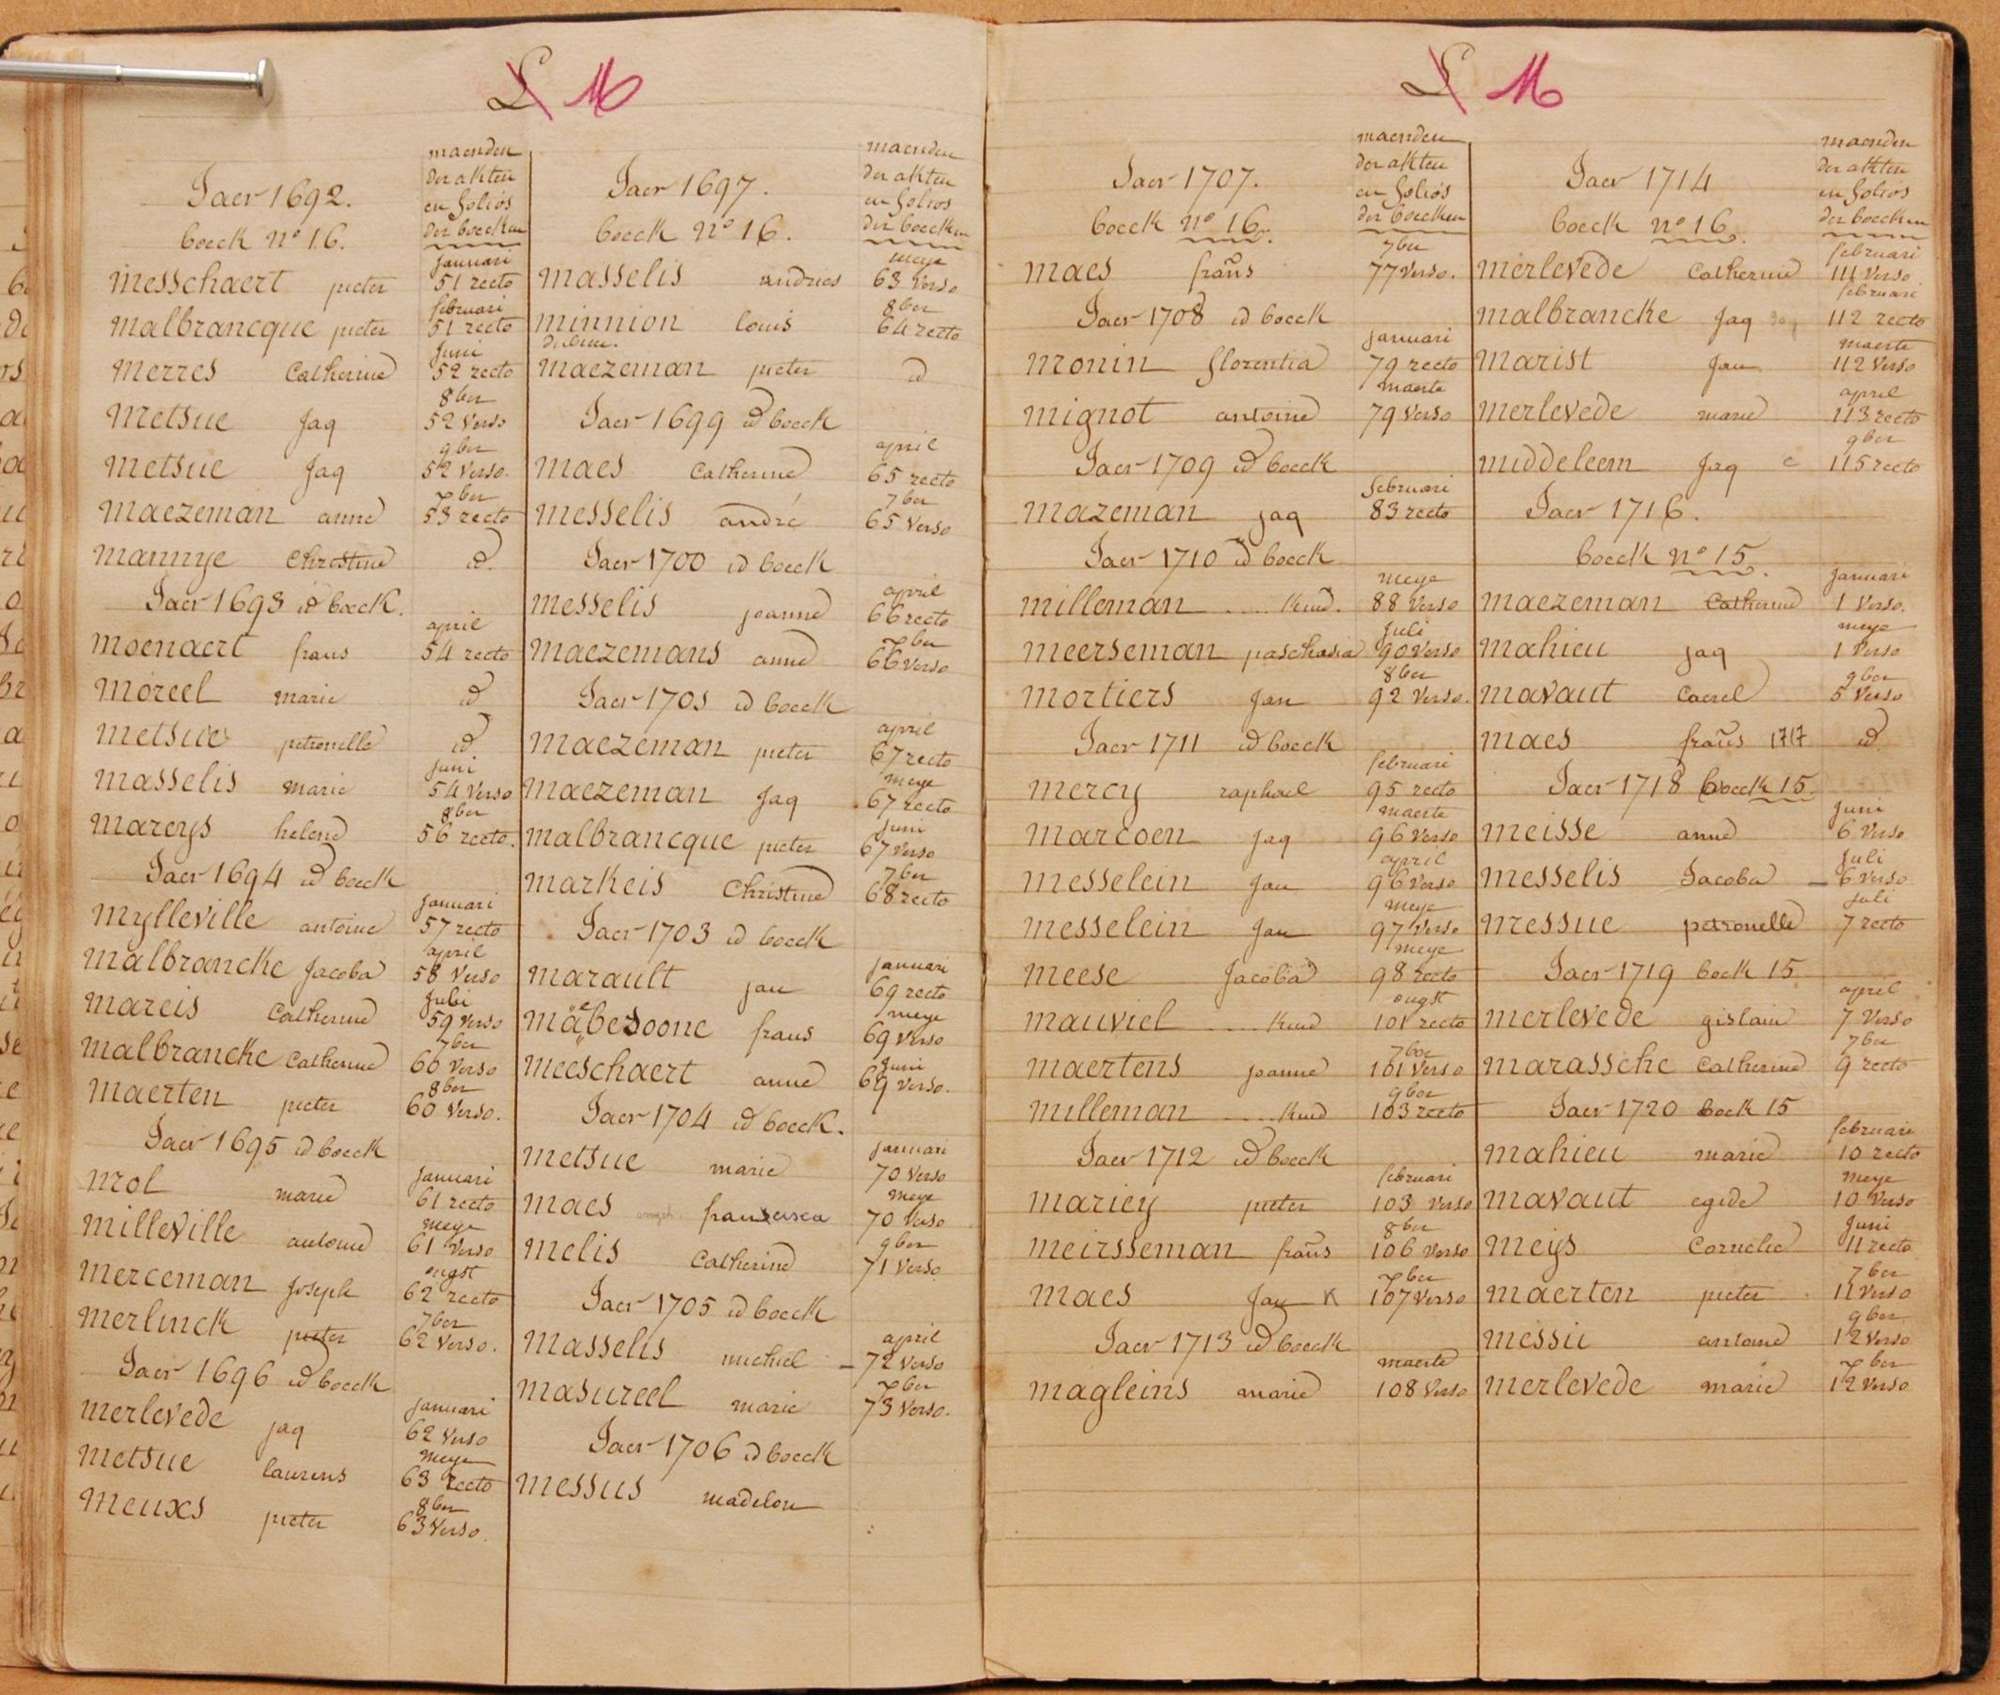 L M
Jaer 1692.
boeck nº 16.
maenden
der akten
en folios
der boecken
messchaert pieter januari 51 recto
malbrancque pieter februari 51 recto
merres Catherine juni 52 recto
metsue jaq 8ber 52 verso
metsue jaq 9ber 52 verso.
maezeman anne 7ber 53 recto
mannye Christine id.
Jaer 1693 id boeck.
moenaert frans april 54 recto
moreel marie id
metsue petronelle id
masselis marie juni 54 verso
mareys helene 8ber 56 recto.
Jaer 1694 id boeck
mylleville antoine januari 57 recto
malbrancke Jacoba april 58 verso
mareis Catherine juli 59 verso
malbrancke Catherine 7ber 60 verso
maerten pieter 8ber 60 verso.
Jaer 1695 id boeck
mol marie januari 61 recto
milleville antoine meye 61 verso
merceman Joseph ougst 62 recto
merlinck pieter 7ber 62 verso.
Jaer 1696 id boeck
merlevede jaq januari 62 verso
metsue laurens meye 63 recto
meuxs pieter 8ber 63 verso.
Jaer 1697.
boeck nº 16.
maenden
der akten
en folios
der boecken
masselis andries meye 63 verso
minnion louis 8ber 64 recto
maezeman pieter id
Jaer 1699 id boeck
maes Catherine april 65 recto
messelis andré 7ber 65 verso
Jaer 1700 id boeck
messelis joanne april 66 recto
maezemans anne 7ber 66 verso
Jaer 1701 id boeck
maezeman pieter april 67 recto
maezeman jaq meye 67 recto
malbrancque pieter juni 67 verso
markeis Christine 7ber 68 recto
Jaer 1703 id boeck
marault jan januari 69 recto
maebesoone frans meye 69 verso
meeschaert anne juni 69 verso.
Jaer 1704 id boeck.
metsue marie januari 70 verso
maes fransisca meye 70 verso
melis Catherine 9ber 71 verso
Jaer 1705 id boeck
masselis michiel april 72 verso
masureel marie 7ber 73 verso.
Jaer 1706 id boeck
messus madelon
L M
Jaer 1707.
boeck nº 16.
maenden
der akten
en folios
der boecken
maes frans 7ber 77 verso.
Jaer 1708 id boeck
monin florentia januari 79 recto
mignot antoine maerte 79 verso
Jaer 1709 id boeck
mazeman jaq februari 83 recto
Jaer 1710 id boeck
milleman .... kind. meye 88 verso
meerseman paschasia juli 90 verso
mortiers jan 8ber 92 verso.
Jaer 1711 id boeck
mercy raphael februari 95 recto
marcoen jaq maerte 96 verso
messelein jan april 96 verso
messelein jan meye 97 verso
meese jacoba meye 98 recto
mauviel .... kind ougst 101 recto
maertens joanne 7ber 101 verso
milleman .... kind 9ber 103 recto
Jaer 1712 id boeck
mariey pieter februari 103 verso
meirsseman frans 8ber 106 verso
maes jan K 7ber 107 verso
Jaer 1713 id boeck
magleins marie maerte 108 verso
Jaer 1714
boeck nº 16.
maenden
der akten
en folios
der boecken
merlevede Catherine februari 111 verso
malbrancke jaq februari 112 recto
marist jan maerte 112 verso
merlevede marie april 113 recto
middeleem jaq c 9ber 115 recto
Jaer 1716.
boeck nº 15.
maezeman Catherine januari 1 verso.
mahieu jaq meye 1 verso
mavaut Caerel 9ber 5 verso
maes frans 1717 id.
Jaer 1718 boeck 15.
meisse anne juni 6 verso
messelis Jacoba juli 6 verso
messue petronelle juli 7 recto
Jaer 1719 boek 15
merlevede gislain april 7 verso
marassche Catherine 7ber 9 recto
Jaer 1720 boek 15
mahieu marie februari 10 recto
mavaut egide meye 10 verso
meys Cornelie juni 11 recto
maerten pieter 7ber 11 verso
messie antoine 9ber 12 verso
merlevede marie 7ber 12 verso